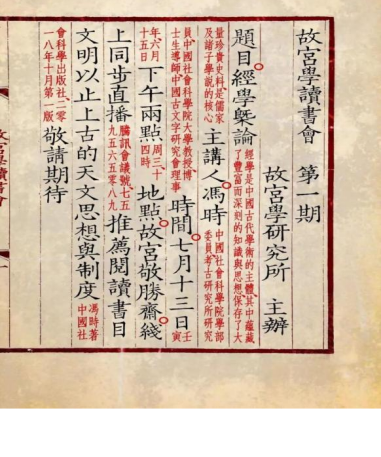 故宮學讀書會　第一期
故宮學研究所　主辦
題目○經學槩論 經學是中國古代學術的主體,其中蘊藏
了豐富而深刻的知識與思想,保存了大
量珍貴史料,是儒家
及諸子學說的核心
主講人○馮時 中國社會科學院學部
委員,考古研究所研究
員,中國社會科學院大學教授,博
士生導師,中國古文字研究會理事
時間○七月十三日 壬
寅
年,六月
十五日
下午兩點 周三十
四時
地點○故宮敬勝齋○綫
上同步直播 騰訊會議號七五
九五六五零八九
推薦閱讀書目
文明以止上古的天文思想與制度 馮時著
中國社
會科學出版社,二零
一八年十月第一版
敬請期待
故宮學讀書會